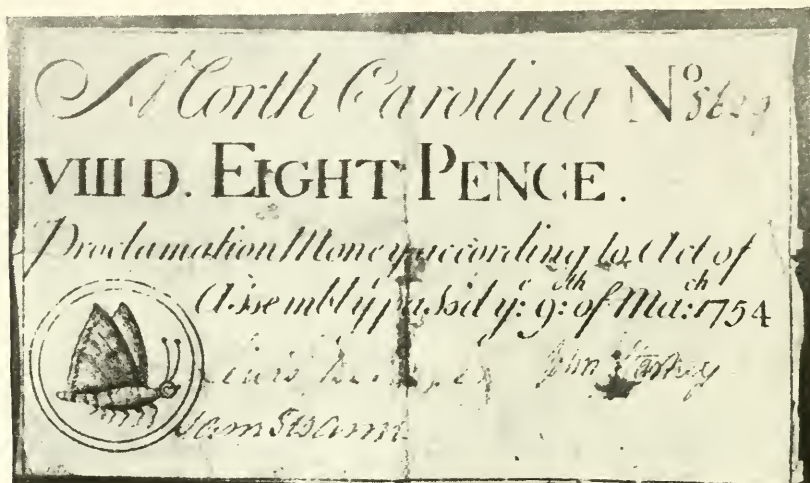 North Carolina Nº 5629
VIII D. EIGHT PENCE.
Proclamation Money according to Act of
Assembly passed yᵉ: 9:ᵗʰ of Ma:ᶜʰ 1754
John Starkey
Sam Swann